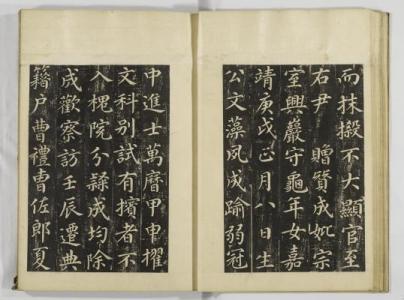 而抹摋不大顯官至
右尹贈贊成妣宗
室興巖守龜年女嘉
靖庚戌正月八日生
公文藻夙成踰弱冠
中進士萬曆甲申擢
文科別試有擯者不
入槐院分隸成均除
成歡察訪壬辰遷典
籍戶曹禮曹佐郎夏